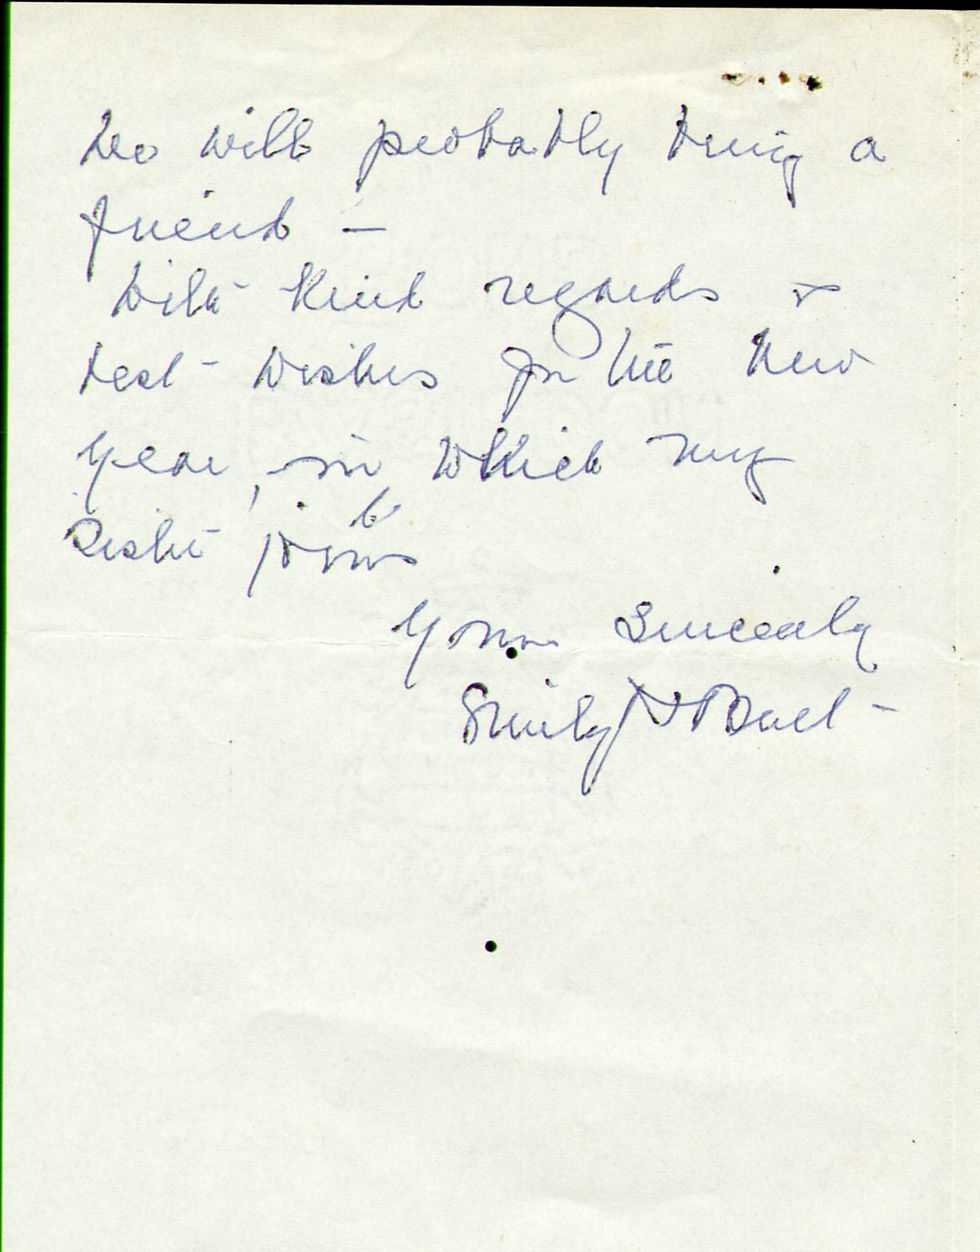 We will probably bring a
friend —
With kind regards &
best wishes for the New
Year, in which my
Sister joins
Yours Sincerely
Emily